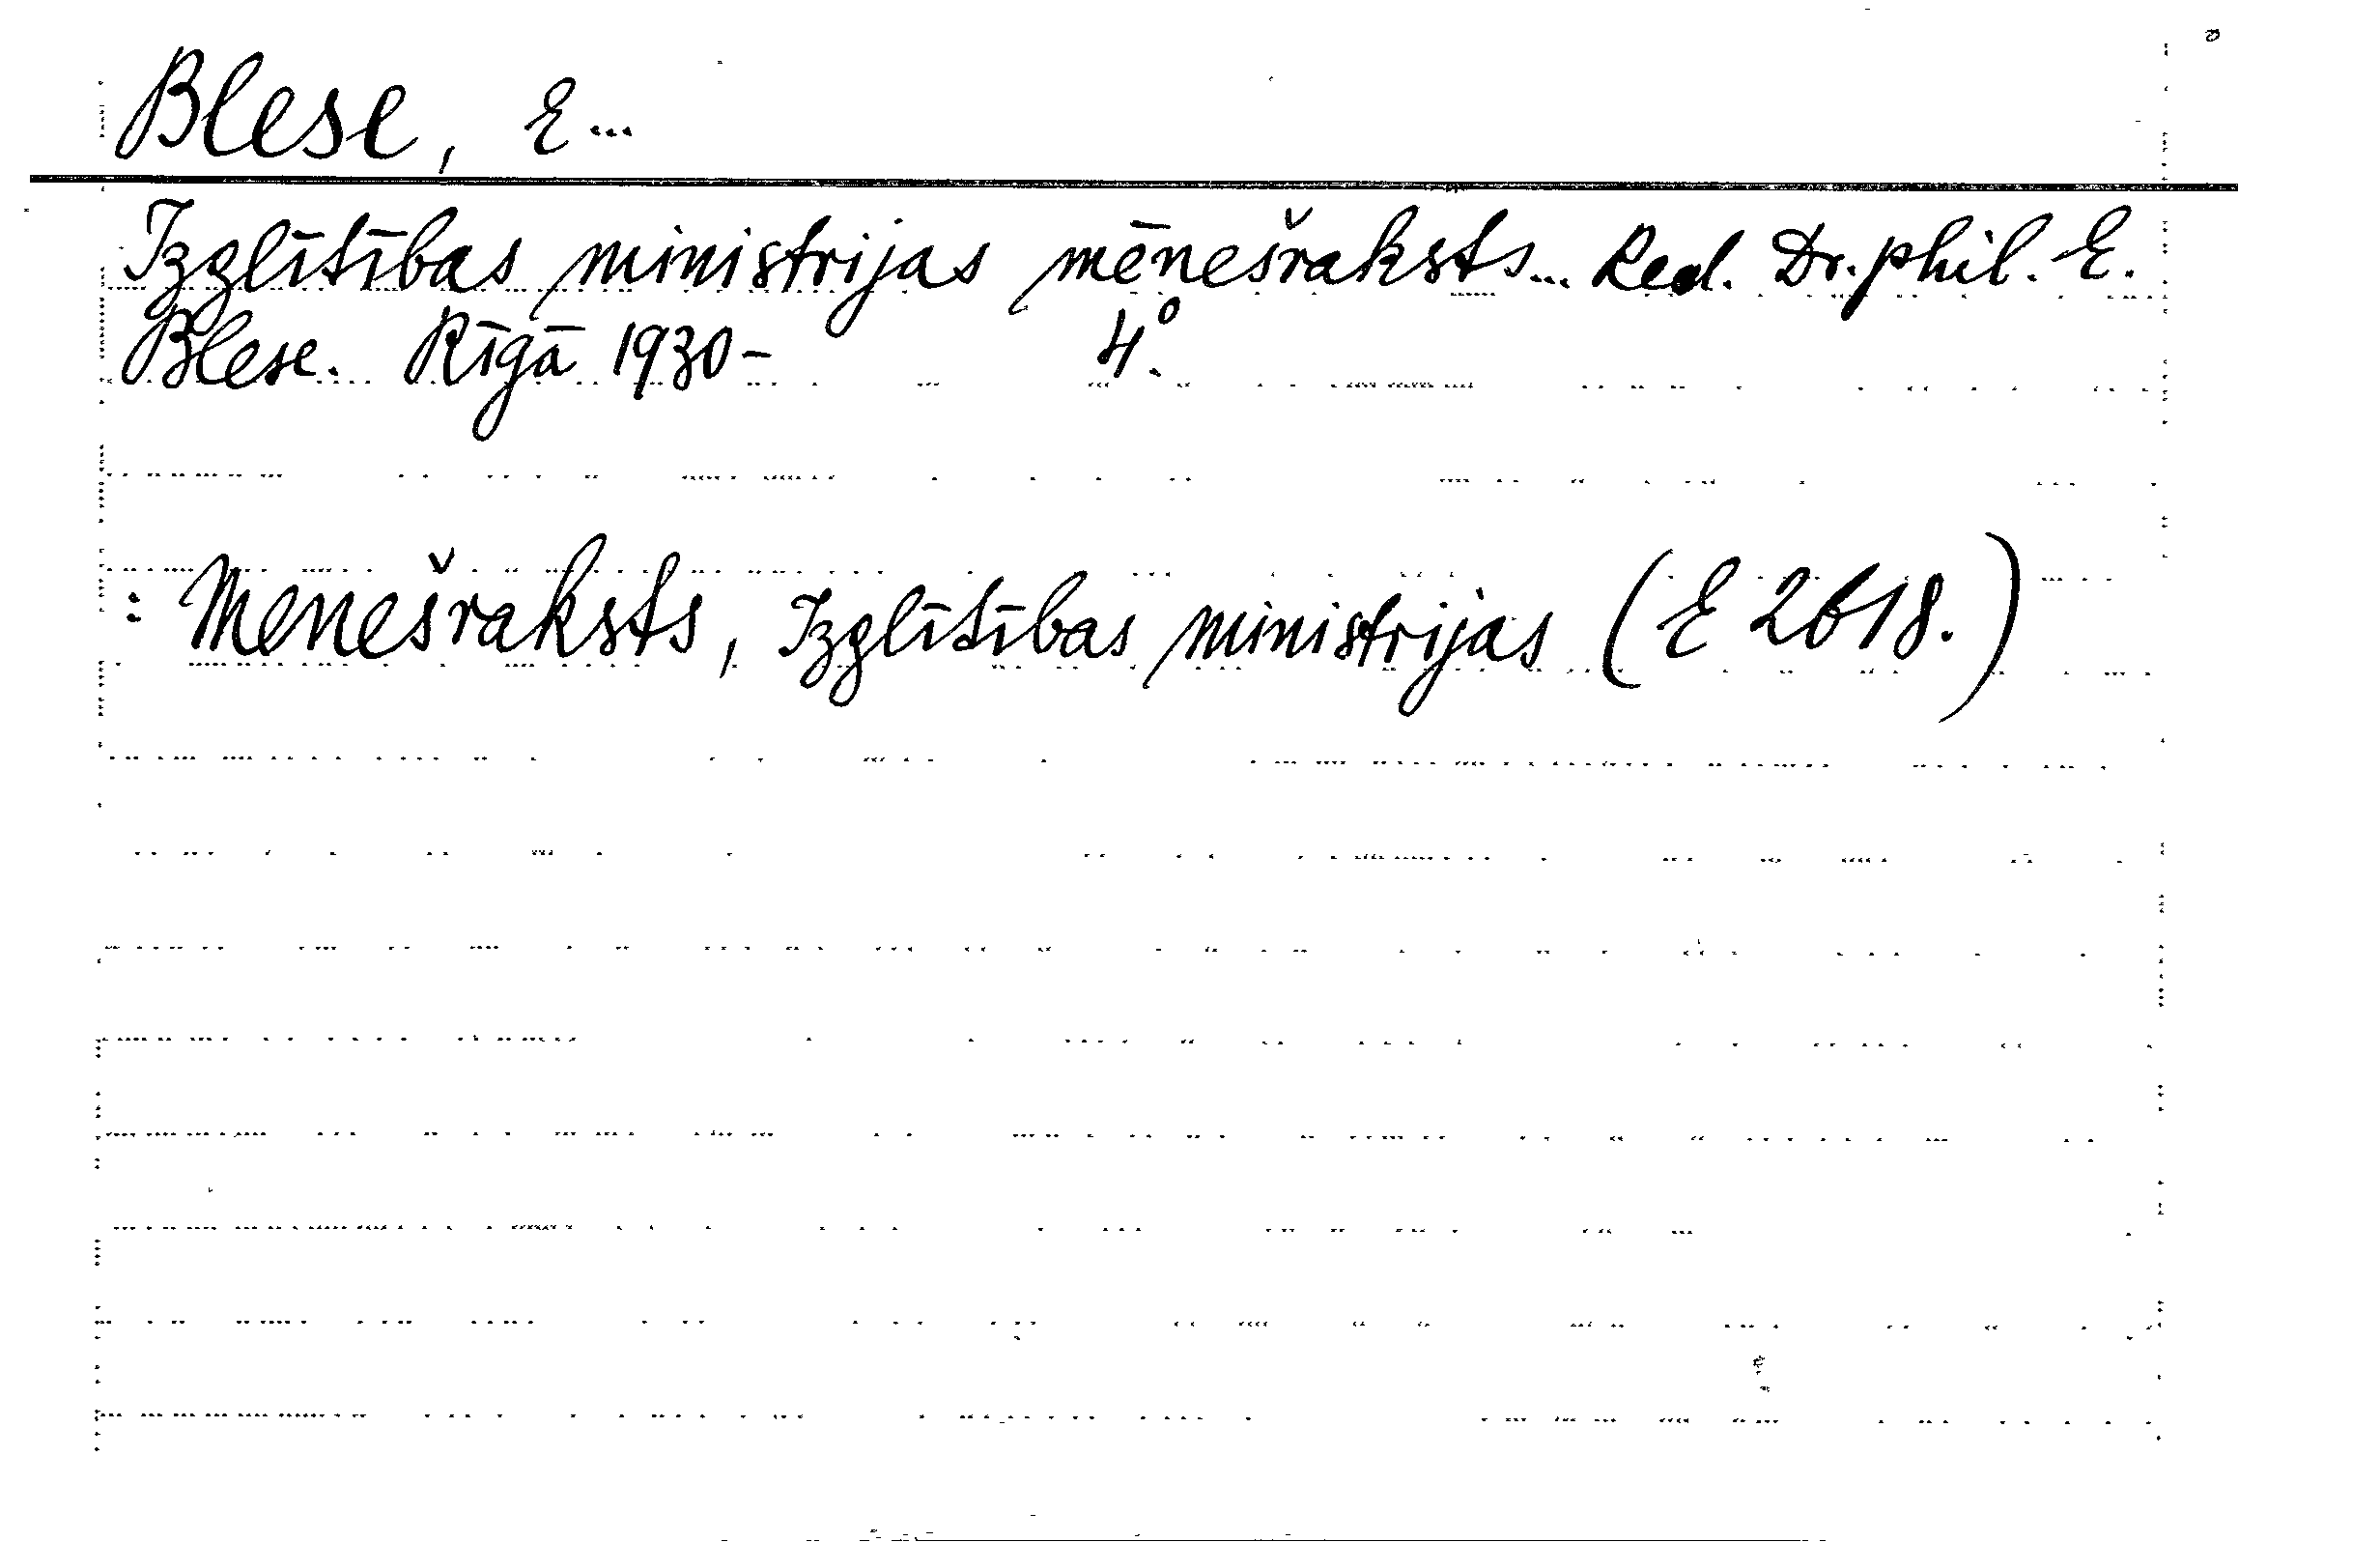 Blese, E...
Izglītības ministrijas mēnešraksts... Red. Dr. phil. E.
Blese. Rīgā 1930- 4°.
: Menešraksts, Izglītības ministrijas (E 2618.)